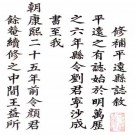 修補平遠縣誌敘
平遠之有誌始於明萬歷
之六年縣令劉君寧沙成
書至我
朝康熙二十五年前令顏君
餘菴續修之中間王益所